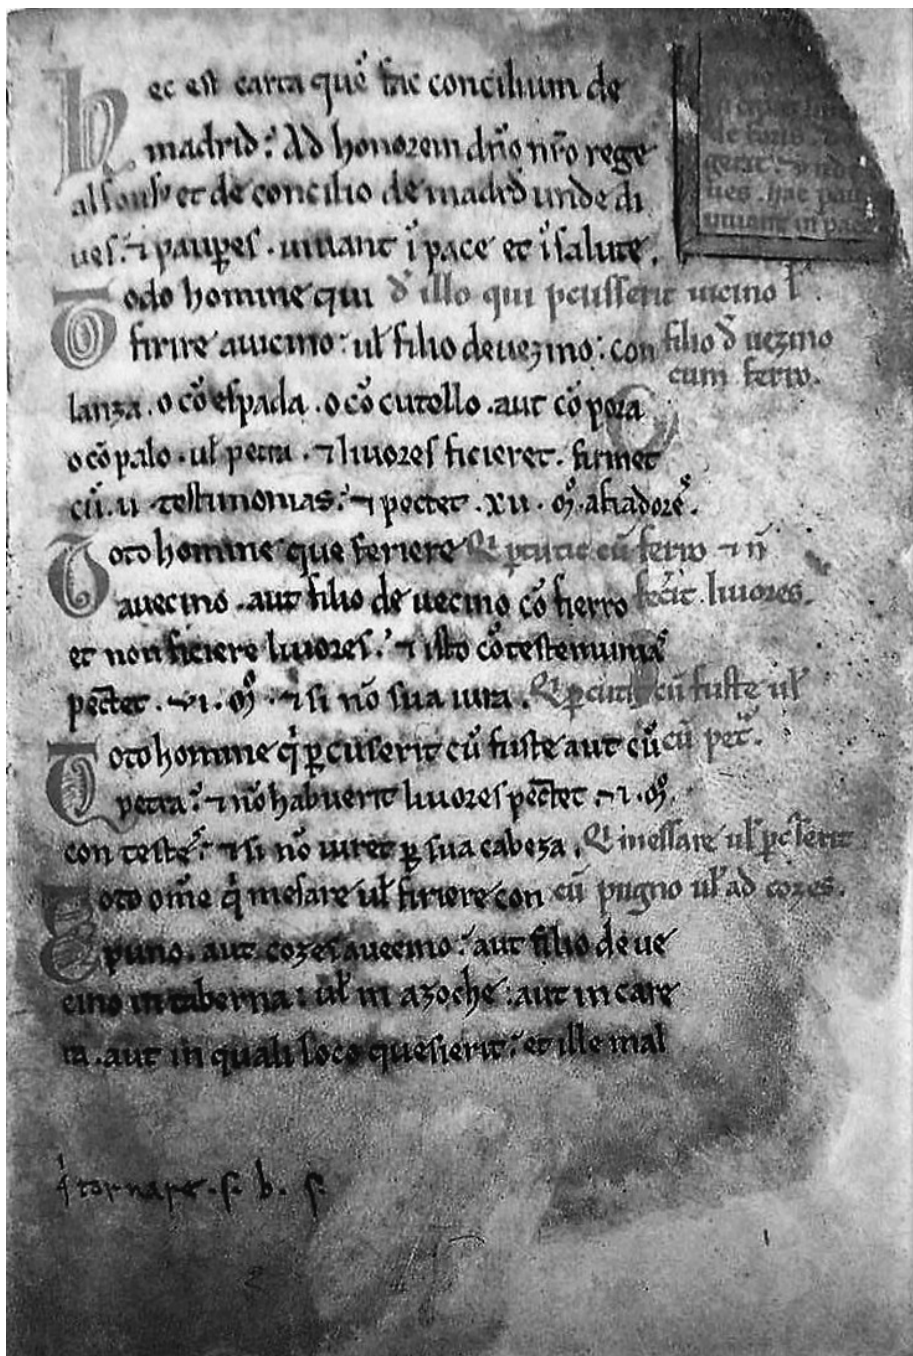 Hec est carta que fac concilium de
madrid: Ad honorem dn̄o nr̄o rege
alfonsus et de concilio de madrid unde di
ues. ⁊ paup̲es. uiuant ī pace et ī salute.
Todo homine qui d̄ illo qui pcusserit uicino ł.
firire auicino: uł filio deuezino: con filio d̄ uezino
cum ferro.
lanza. o cō espada. o cō cutello. aut cō pora
o cō palo. uł petra. ⁊ liuores ficieret. firmet
cū. ii. testimonias. ⁊ pectet. xii. m̄. afiadores.
Toto homine que feriere Q̄ p̲cutit cū ferro ⁊ n̄
auecino. aut filio de uecino cō fierro fecit liuores.
et non ficiere liuores. ⁊ isto cō testemunias
pectet. vi. m̄. ⁊ si nō sua iura. Q̄ p̲cutit cū fuste uł
Toto homine q̄ p̲cuserit cū fuste aut cū cū pet̄.
petra. ⁊ nō habuerit liuores pectet. vi. m̄.
con testes. ⁊ si nō iuret p̲ sua cabeza. Q̄ messare uł p̲cuserit
Toto om̄e q̄ mesare uł firiere con cū pugno uł ad cozes.
puno. aut cozes auecino. aut filio de ue
cino in taberna: uł in azoche: aut in care
ra. aut in quali loco quesierit. et ille mal
tornare. s. b. s.
de foris
ues. hac pau
uiuant in pace